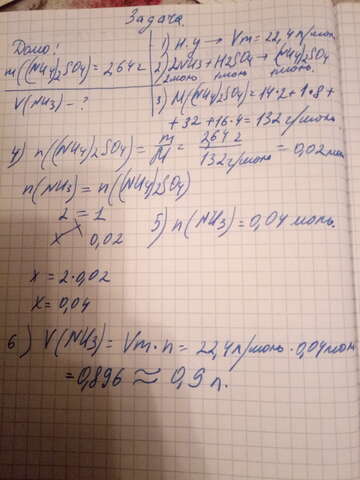 Задача.
Дано:
m((NH4)2SO4) = 2,64 г
V(NH3) - ?
1) н.у → Vm = 22,4 л/моль
2) 2NH3 + H2SO4 → (NH4)2SO4
2моль 1моль 1моль.
3) M((NH4)2SO4) = 14·2 + 1·8 +
+ 32 + 16·4 = 132 г/моль
4) n((NH4)2SO4) = m/M = 2,64 г/132 г/моль = 0,02 моль
n(NH3) = n((NH4)2SO4)
2 = 1
x 0,02
5) n(NH3) = 0,04 моль.
x = 2·0,02
x = 0,04
6) V(NH3) = Vm·n = 22,4 л/моль · 0,04 моль
= 0,896 ≈ 0,9 л.